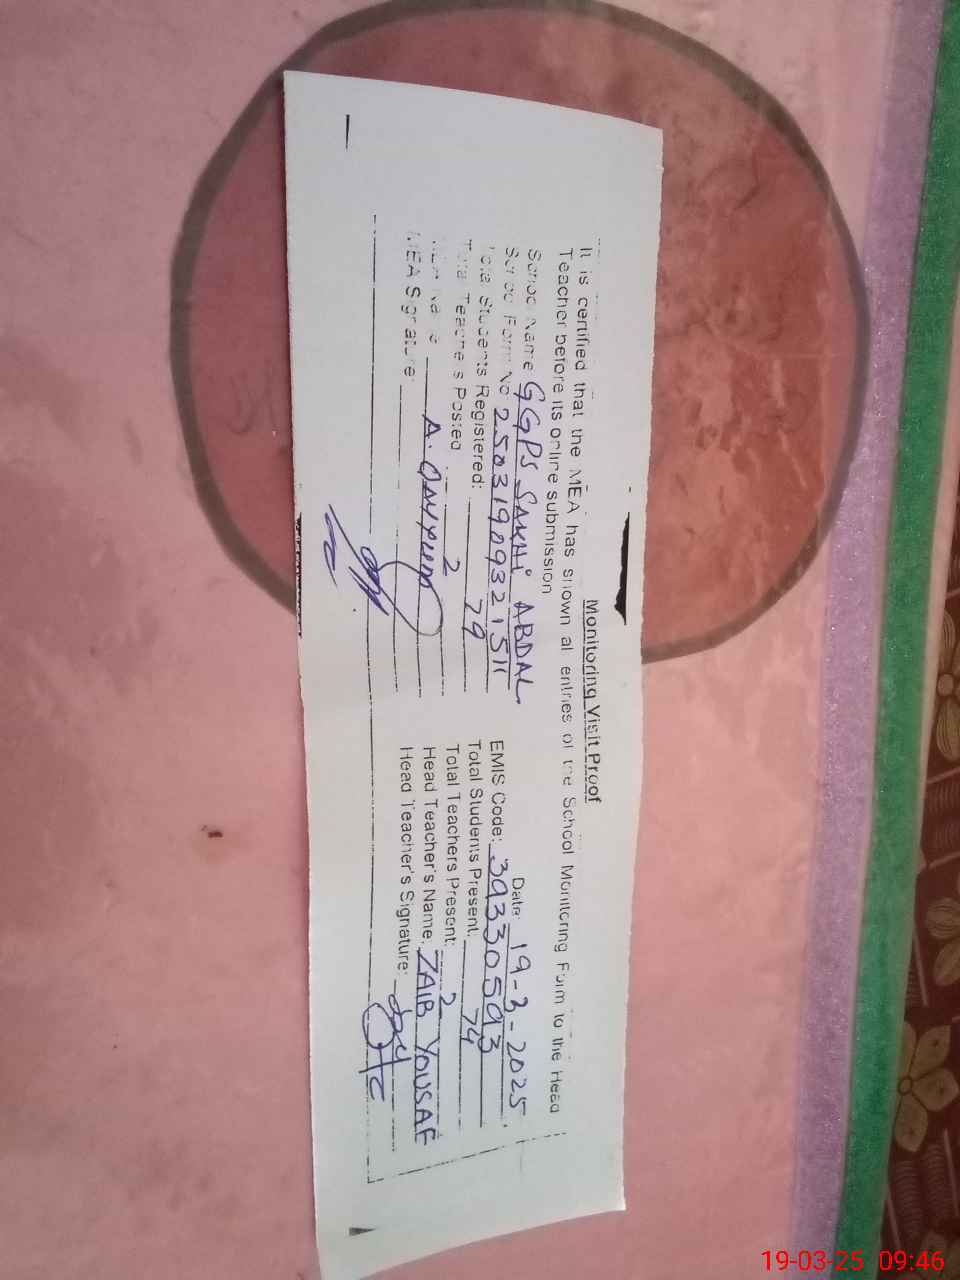 Monitoring Visit Proof
It is certified that the MEA has shown all entries of the School Monitoring Form to the Head
Teacher before its online submission
Date: 19-3-2025
School Name GGPS SAKHI ABDAL
EMIS Code: 39330593
School Form No 25031909321511
Total Students Present: 74
Total Students Registered: 79
Total Teachers Present: 2
Total Teachers Posted 2
Head Teacher's Name: ZAIB YOUSAF
MEA Name A. QAYYUM
Head Teacher's Signature:
MEA Signature:
19-03-25 09:46